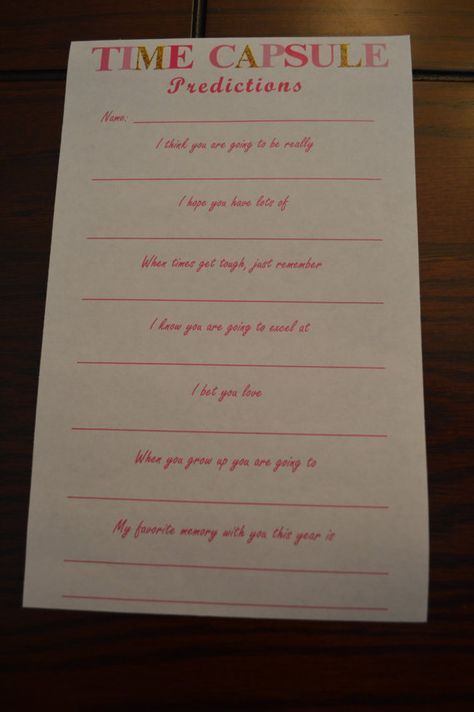 TIME CAPSULE
Predictions
Name:
I think you are going to be really
I hope you have lots of
When times get tough, just remember
I know you are going to excel at
I bet you love
When you grow up you are going to
My favorite memory with you this year is